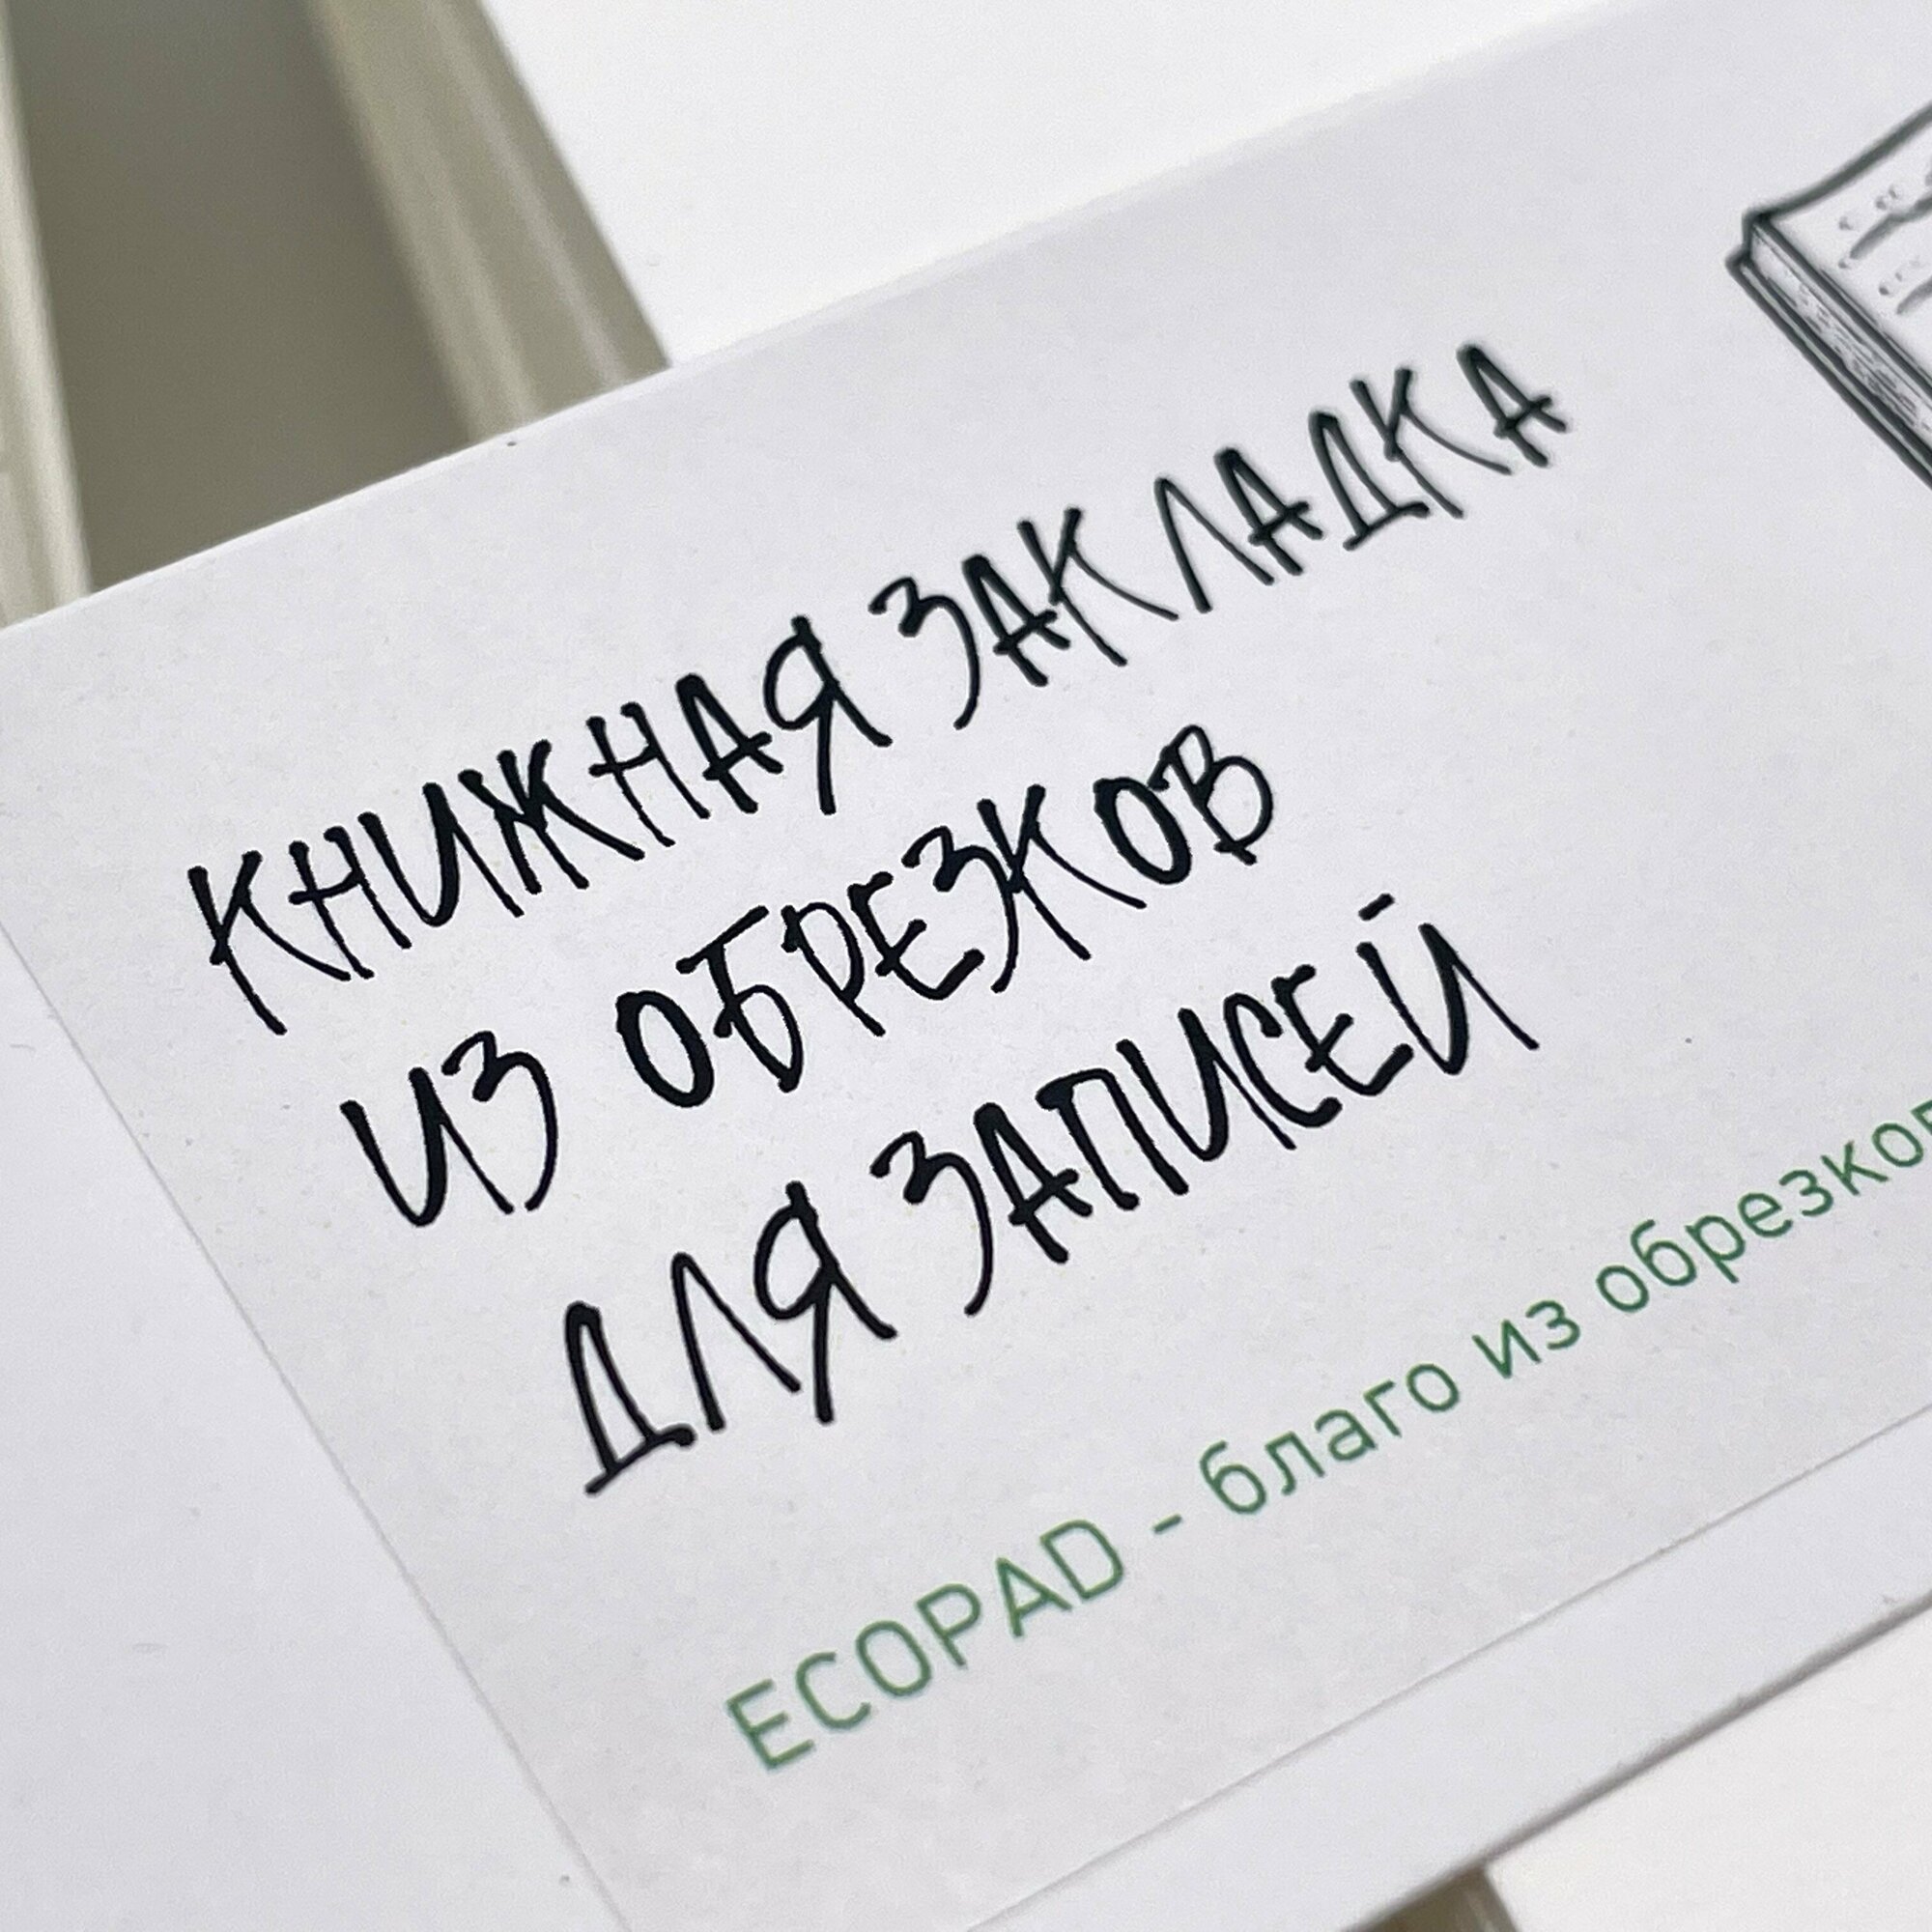 КНИЖНАЯ ЗАКЛАДКА
ИЗ ОБРЕЗКОВ
ДЛЯ ЗАПИСЕЙ
ECOPAD - благо из обрезков